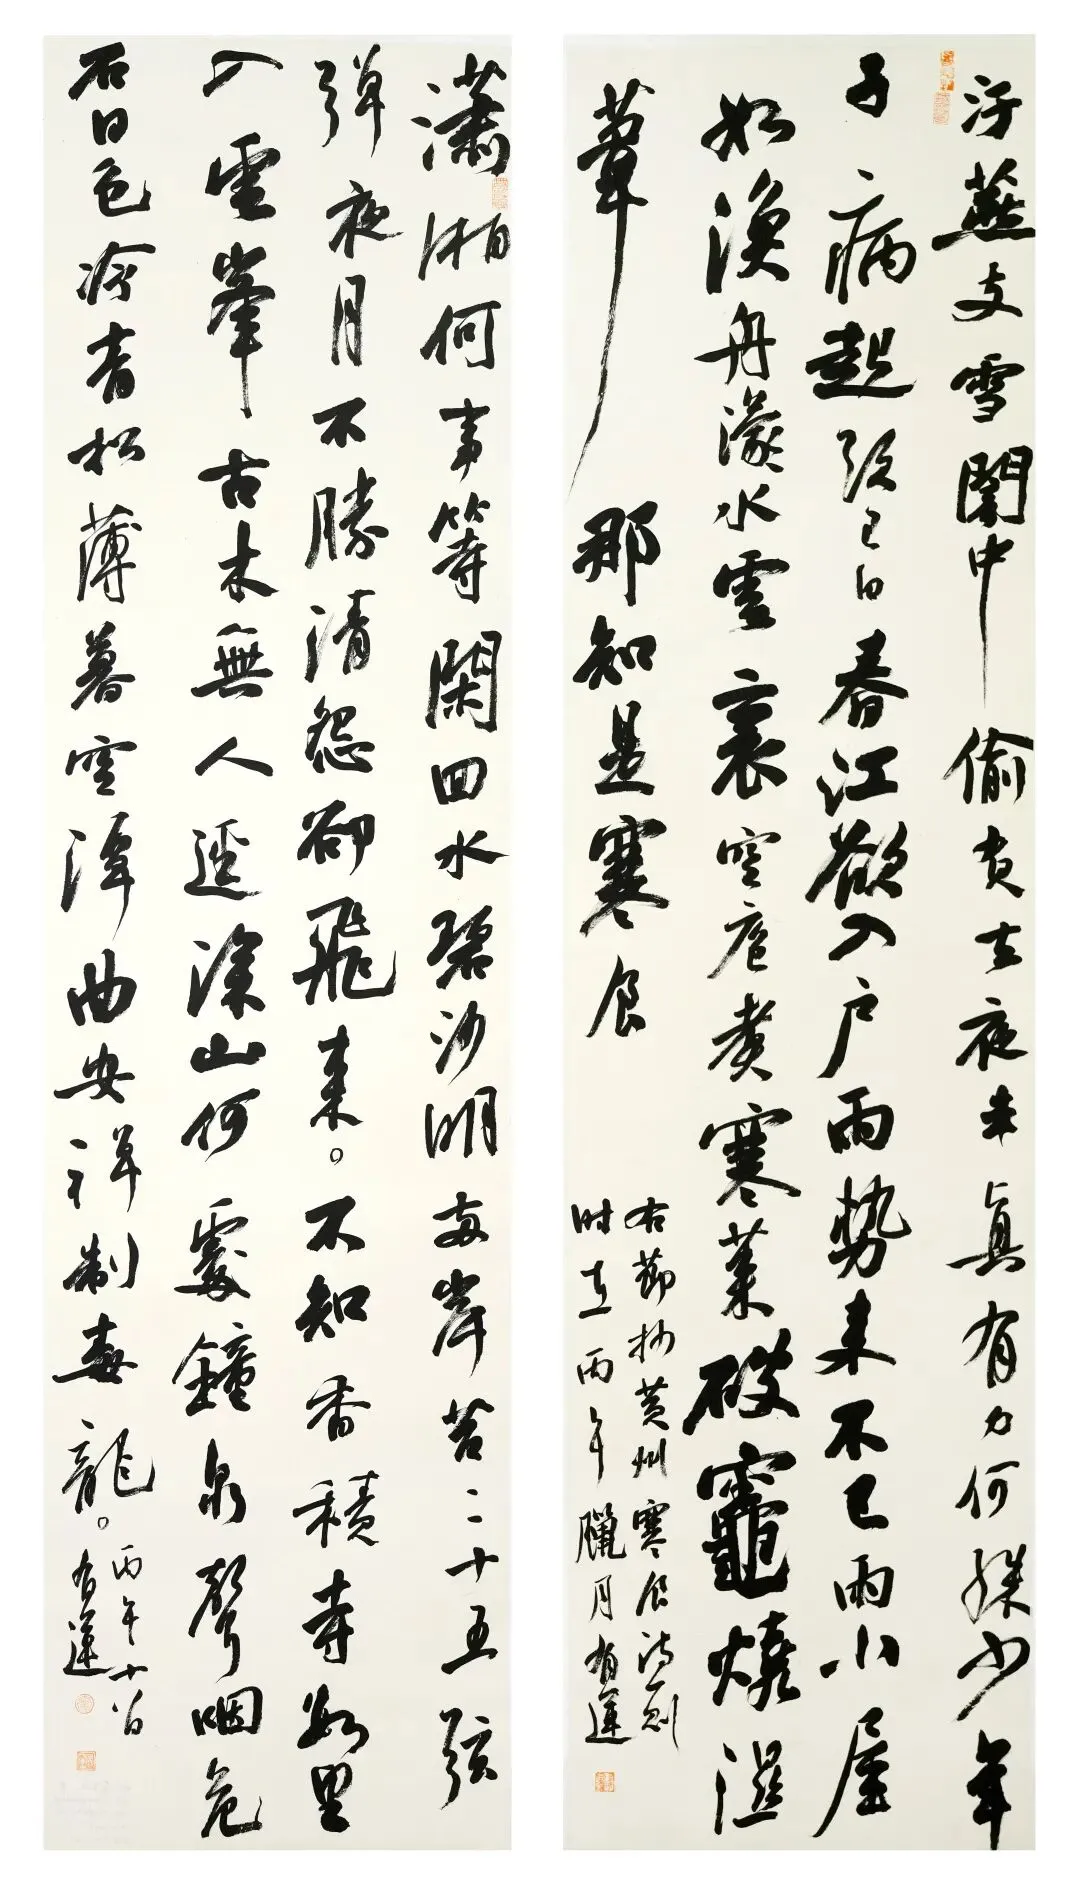 汙燕支雪闇中偷負去夜半真有力何殊少年
子病起須已白春江欲入戶雨勢来不已雨小屋
如漁舟濛水雲裏空庖煮寒菜破竈燒濕
葦那知是寒食
右節抄黄州寒食詩一則
时在丙午臘月有蓮
瀟湘何事等閑回水碧沙明兩岸苔二十五弦
彈夜月不勝清怨卻飛来。不知香積寺數里
入雲峯古木無人逕深山何處鐘泉聲咽危
石日色冷青松薄暮空潭曲安禪制毒龍。
丙午十
有蓮